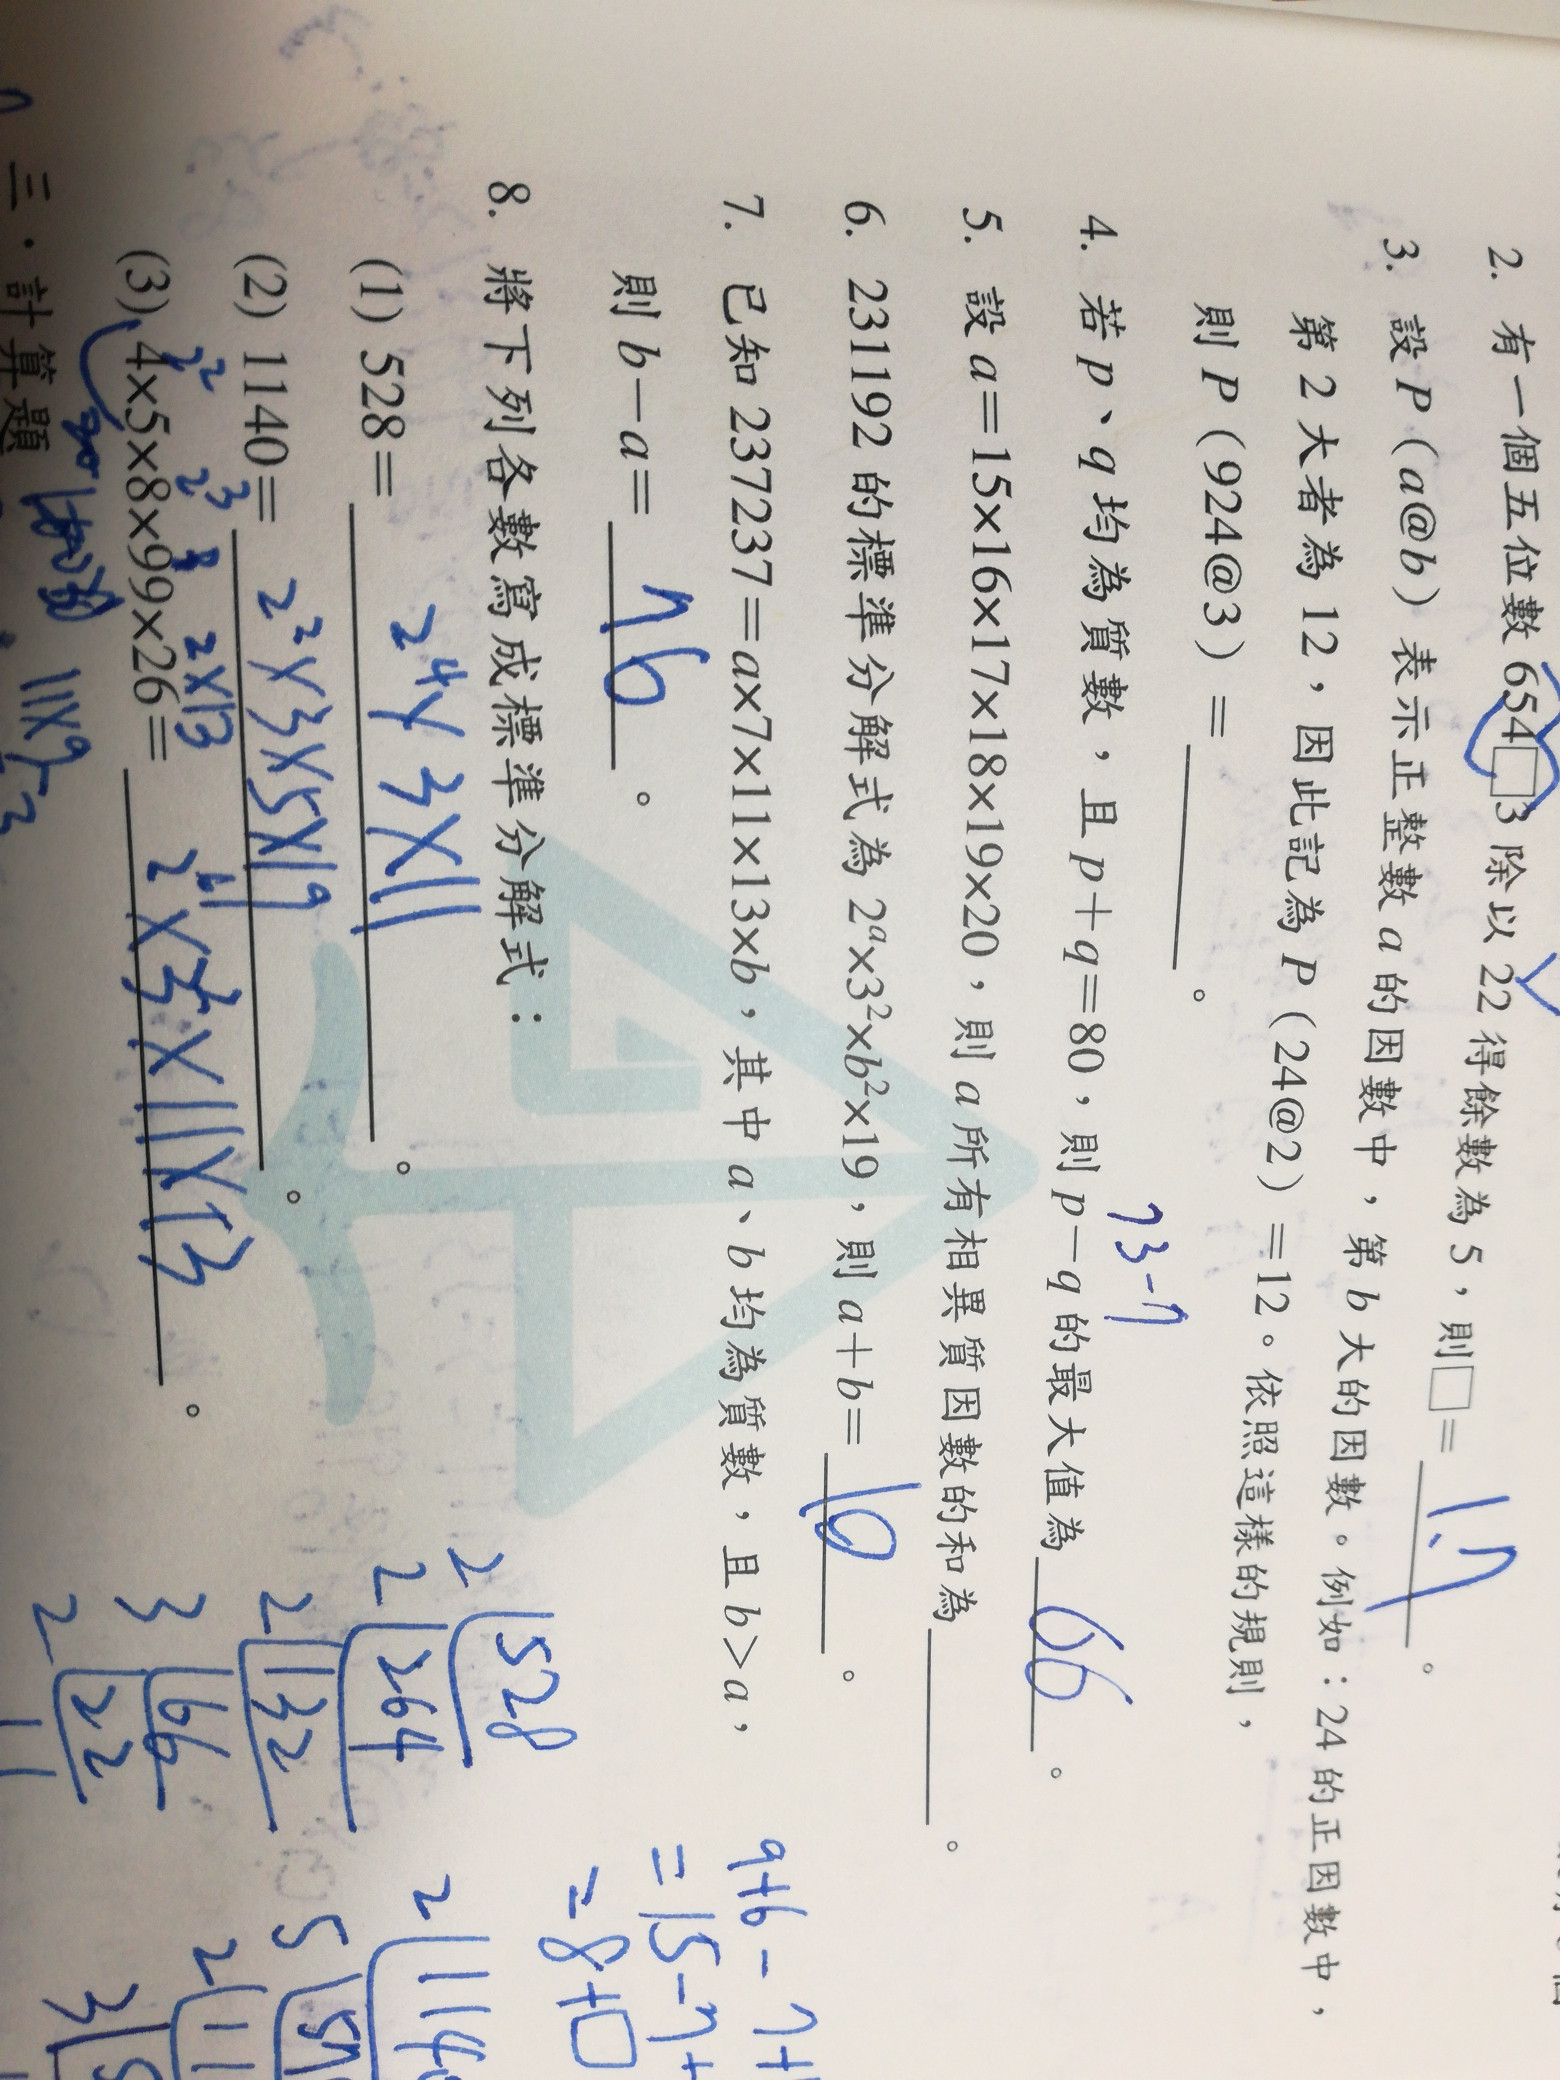 2. 有一個五位數 654□3 除以 22 得餘數為 5，則□= 1.7 。
3. 設 P（a@b）表示正整數 a 的因數中，第 b 大的因數。例如：24 的正因數中，
第 2 大者為 12，因此記為 P（24@2）=12。依照這樣的規則，
則 P（924@3）= 。
73-7
4. 若 p、q 均為質數，且 p+q=80，則 p-q 的最大值為 66 。
5. 設 a=15×16×17×18×19×20，則 a 所有相異質因數的和為 。
6. 231192 的標準分解式為 2ᵃ×3²×b²×19，則 a+b= 10 。
7. 已知 237237=a×7×11×13×b，其中 a、b 均為質數，且 b>a，
則 b-a= 76 。
8. 將下列各數寫成標準分解式：
(1) 528= 2⁴×3×11 。
(2) 1140= 2²×3×5×19 。
2² 2³ 2×13
(3) 4×5×8×99×26= 2⁶×3²×11×13 。
11×9
三．計算題
2 528
2 264
2 132
3 66
2 22
11
9+6-7+
=15-7+
=8+□
2 114
5 57
2 11
3